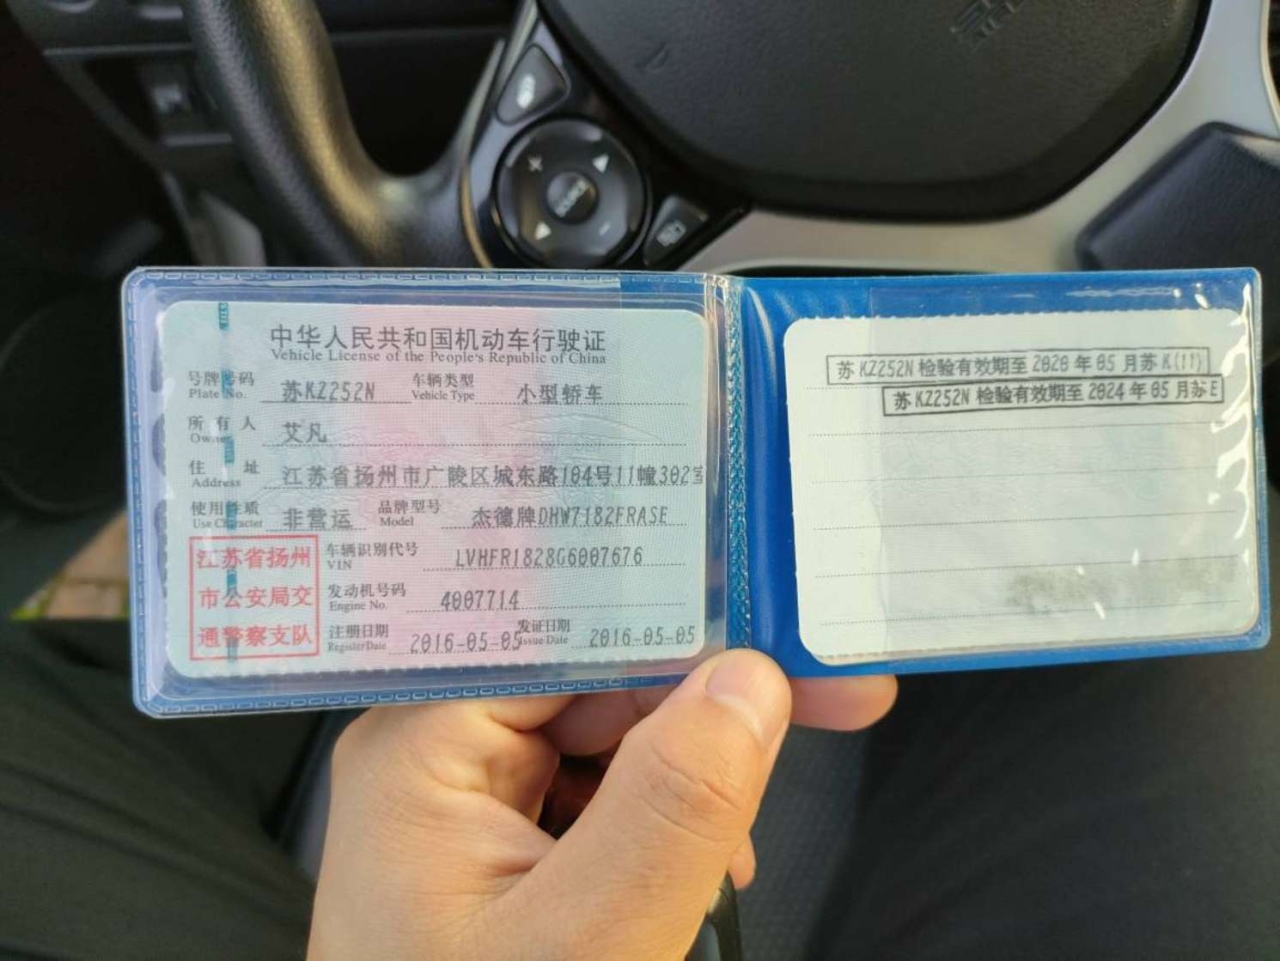 中华人民共和国机动车行驶证
Vehicle License of the People's Republic of China
号牌号码 苏KZ252N 车辆类型 小型轿车
Plate No. Vehicle Type
所有人 艾凡
Owner
住址 江苏省扬州市广陵区城东路104号11幢302室
Address
使用性质 非营运 品牌型号 杰德牌DHW7182FRASE
Use Character Model
江苏省扬州
市公安局交
通警察支队
车辆识别代号 LVHFR1828G6007676
VIN
发动机号码 4007714
Engine No.
注册日期 2016-05-05 发证日期 2016-05-05
Register Date Issue Date
苏KZ252N 检验有效期至 2020 年 05 月苏 K(11)
苏KZ252N 检验有效期至 2024 年 05 月苏E